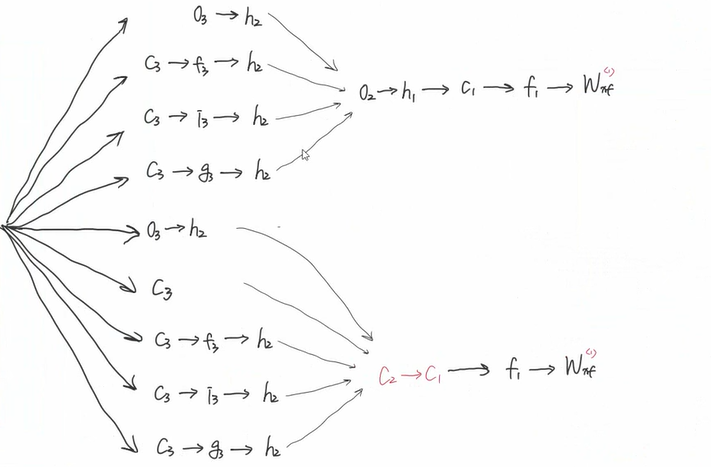 O₃ → h₂
C₃ → f₃ → h₂
C₃ → i₃ → h₂
C₃ → g₃ → h₂
O₂ → h₁ → C₁ → f₁ → Wxf⁽¹⁾
O₃ → h₂
C₃
C₃ → f₃ → h₂
C₃ → i₃ → h₂
C₃ → g₃ → h₂
C₂ → C₁ → f₁ → Wxf⁽¹⁾